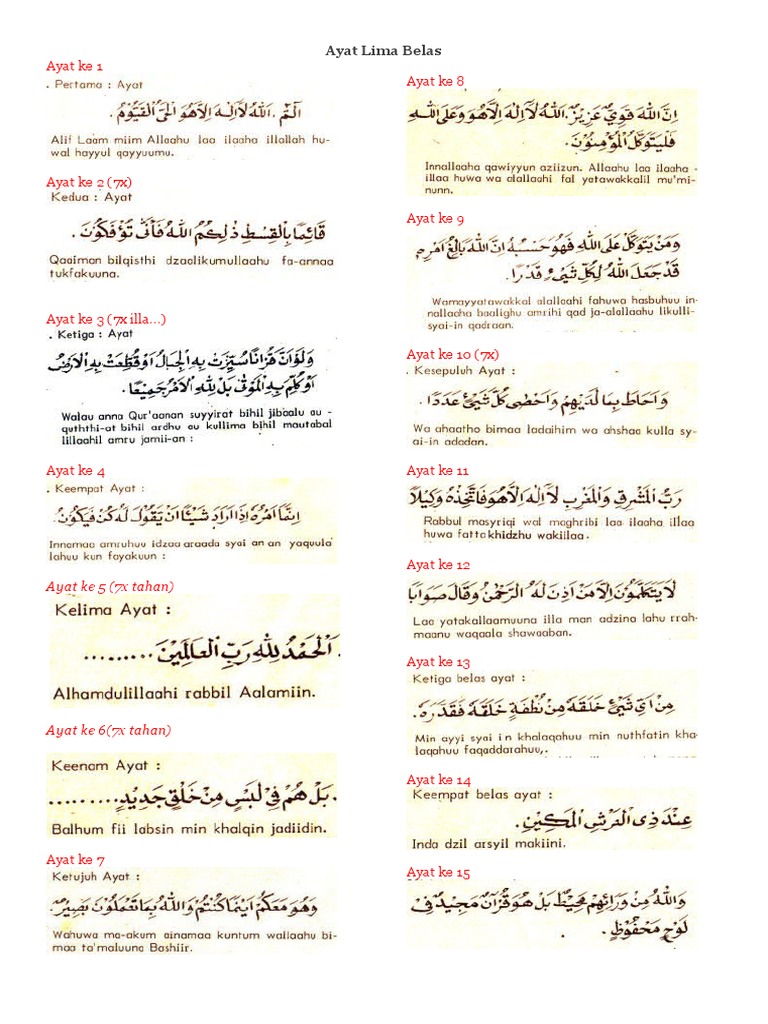 Ayat Lima Belas
Ayat ke 1
. Pertama : Ayat
الٓمّٓ. اَللّٰهُ لَآاِلٰهَ اِلَّاهُوَ الْحَيُّ الْقَيُّوْمُ .
Alif Laam miim Allaahu laa ilaaha illallah hu-
wal hayyul qayyuumu.
Ayat ke 2 (7x)
Kedua : Ayat
قَائِمًا بِالْقِسْطِ ذٰلِكُمُ اللّٰهُ فَاَنّٰى تُؤْفَكُوْنَ .
Qaaiman bilqisthi dzaolikumullaahu fa-annaa
tukfakuuna.
Ayat ke 3 (7x illa...)
. Ketiga : Ayat
وَلَوْاَنَّ قُرْاٰنًاسُيِّرَتْ بِهِ الْجِبَالُ اَوْقُطِّعَتْ بِهِ الْاَرْضُ
اَوْكُلِّمَ بِهِ الْمَوْتٰى بَلْ لِلّٰهِ الْاَمْرُجَمِيْعًا .
Walau anna Qur'aanan suyyirat bihil jibaalu au -
quththi-at bihil ardhu au kullima bihil mautabal
lillaahil amru jamii-an :
Ayat ke 4
. Keempat Ayat :
اِنَّمَآ اَمْرُهُ اِذَآاَرَادَ شَيْئًااَنْ يَقُوْلَ لَهُ كُنْ فَيَكُوْنُ .
Innamaa amruhuu idzaa araada syai an an yaquula
lahuu kun fayakuun :
Ayat ke 5 (7x tahan)
Kelima Ayat :
اَلْحَمْدُ لِلّٰهِ رَبِّ الْعَالَمِيْنَ .........
Alhamdulillaahi rabbil Aalamiin.
Ayat ke 6(7x tahan)
Keenam Ayat :
بَلْ هُمْ فِيْ لَبْسٍ مِنْ خَلْقٍ جَدِيْدٍ .........
Balhum fii labsin min khalqin jadiidin.
Ayat ke 7
Ketujuh Ayat :
وَهُوَ مَعَكُمْ اَيْنَمَا كُنْتُمْ وَاللّٰهُ بِمَاتَعْمَلُوْنَ بَصِيْرٌ .
Wahuwa ma-akum ainamaa kuntum wallaahu bi-
maa ta'maluuna Bashiir.
Ayat ke 8
اِنَّ اللّٰهَ قَوِيٌّ عَزِيْزٌ. اَللّٰهُ لَآاِلٰهَ اِلَّاهُوَ وَعَلَى اللّٰهِ
فَلْيَتَوَكَّلِ الْمُؤْمِنُوْنَ .
Innallaaha qawiyyun aziizun. Allaahu laa ilaaha -
illaa huwa wa alallaahi fal yatawakkalil mu'mi-
nunn.
Ayat ke 9
وَمَنْ يَتَوَكَّلْ عَلَى اللّٰهِ فَهُوَحَسْبُهُ اِنَّ اللّٰهَ بَالِغُ اَمْرِهِ
قَدْ جَعَلَ اللّٰهُ لِكُلِّ شَيْءٍ قَدْرًا .
Wamayyatawakkal alallaahi fahuwa hasbuhuu in-
nallaaha baalighu amrihi qad ja-alallaahu likulli-
syai-in qadraan.
Ayat ke 10 (7x)
. Kesepuluh Ayat :
وَاَحَاطَ بِمَا لَدَيْهِمْ وَاَحْصٰى كُلَّ شَيْءٍ عَدَدًا .
Wa ahaatho bimaa ladaihim wa ahshaa kulla sy-
ai-in adadan.
Ayat ke 11
رَبُّ الْمَشْرِقِ وَالْمَغْرِبِ لَآاِلٰهَ اِلَّاهُوَفَاتَّخِذْهُ وَكِيْلًا
Rabbul masyriqi wal maghribi laa ilaaha illaa
huwa fatta khidzhu wakillaa.
Ayat ke 12
لَايَتَكَلَّمُوْنَ اِلَّامَنْ اَذِنَ لَهُ الرَّحْمٰنُ وَقَالَ صَوَابًا
Laa yatakallaamuuna illa man adzina lahu rrah-
maanu waqaala shawaaban.
Ayat ke 13
Ketiga belas ayat :
مِنْ اَيِّ شَيْءٍ خَلَقَهُ مِنْ نُطْفَةٍ خَلَقَهُ فَقَدَّرَهُ .
Min ayyi syai in khalaqahuu min nuthfatin kha-
laqahuu faqaddarahuu,.
Ayat ke 14
Keempat belas ayat :
عِنْدَ ذِى الْعَرْشِ الْمَكِيْنِ .
Inda dzil arsyil makiini.
Ayat ke 15
وَاللّٰهُ مِنْ وَرَائِهِمْ مُحِيْطٌ بَلْ هُوَ قُرْآنٌ مَجِيْدٌ فِيْ
لَوْحٍ مَحْفُوْظٍ .